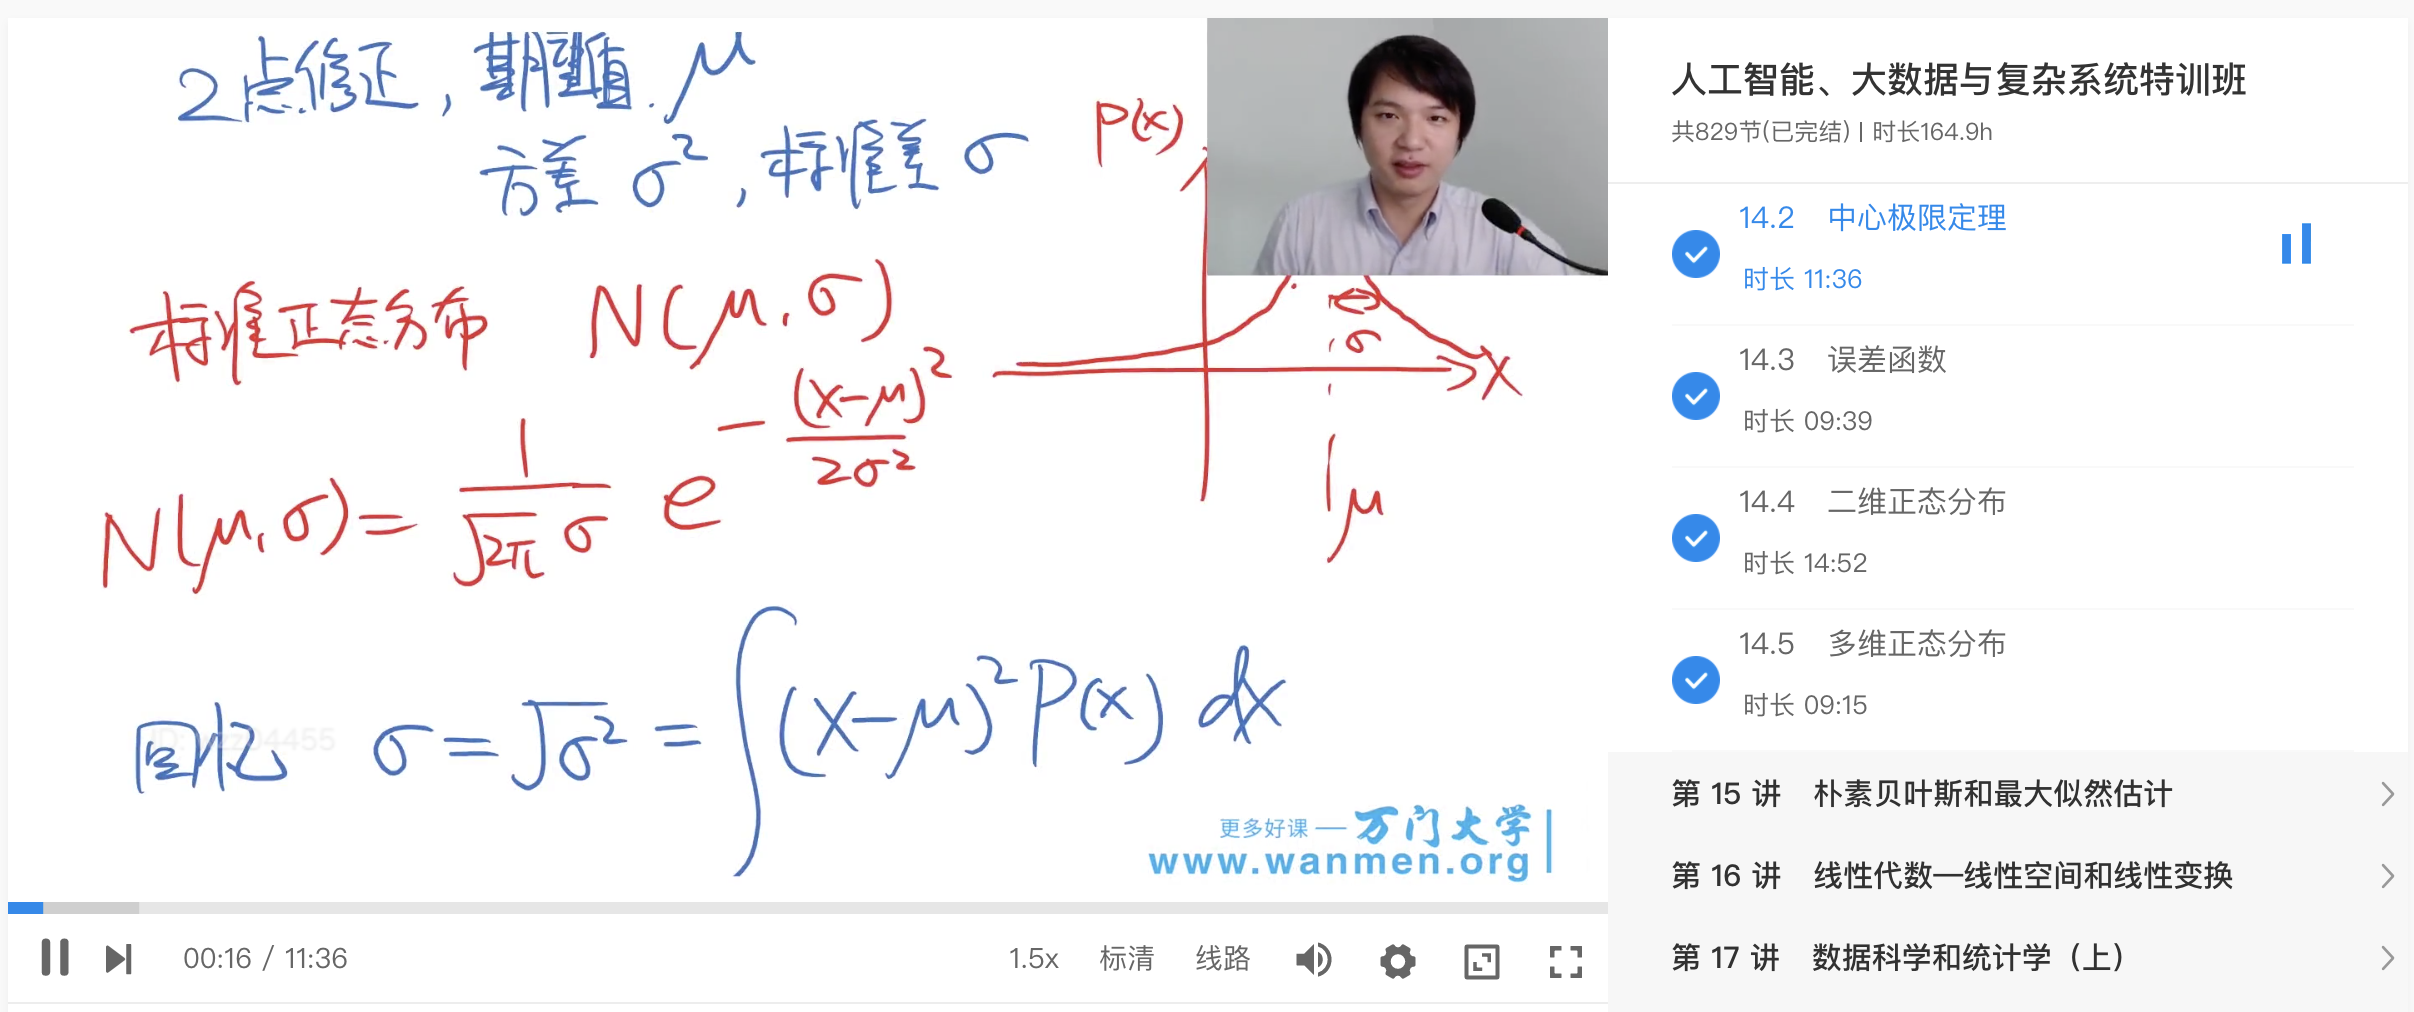 2点修正，期望值. μ
方差 σ²，标准差 σ
P(x)
标准正态分布 N(μ,σ)
σ
X
N(μ,σ)= 1/(√2π σ) e^-(x-μ)²/2σ²
μ
回忆 σ=√σ² = ∫(x-μ)² P(x) dx
更多好课 — 万门大学
www.wanmen.org
00:16 / 11:36
1.5x 标清 线路
人工智能、大数据与复杂系统特训班
共829节(已完结) | 时长164.9h
14.2 中心极限定理
时长 11:36
14.3 误差函数
时长 09:39
14.4 二维正态分布
时长 14:52
14.5 多维正态分布
时长 09:15
第 15 讲 朴素贝叶斯和最大似然估计
第 16 讲 线性代数—线性空间和线性变换
第 17 讲 数据科学和统计学（上）